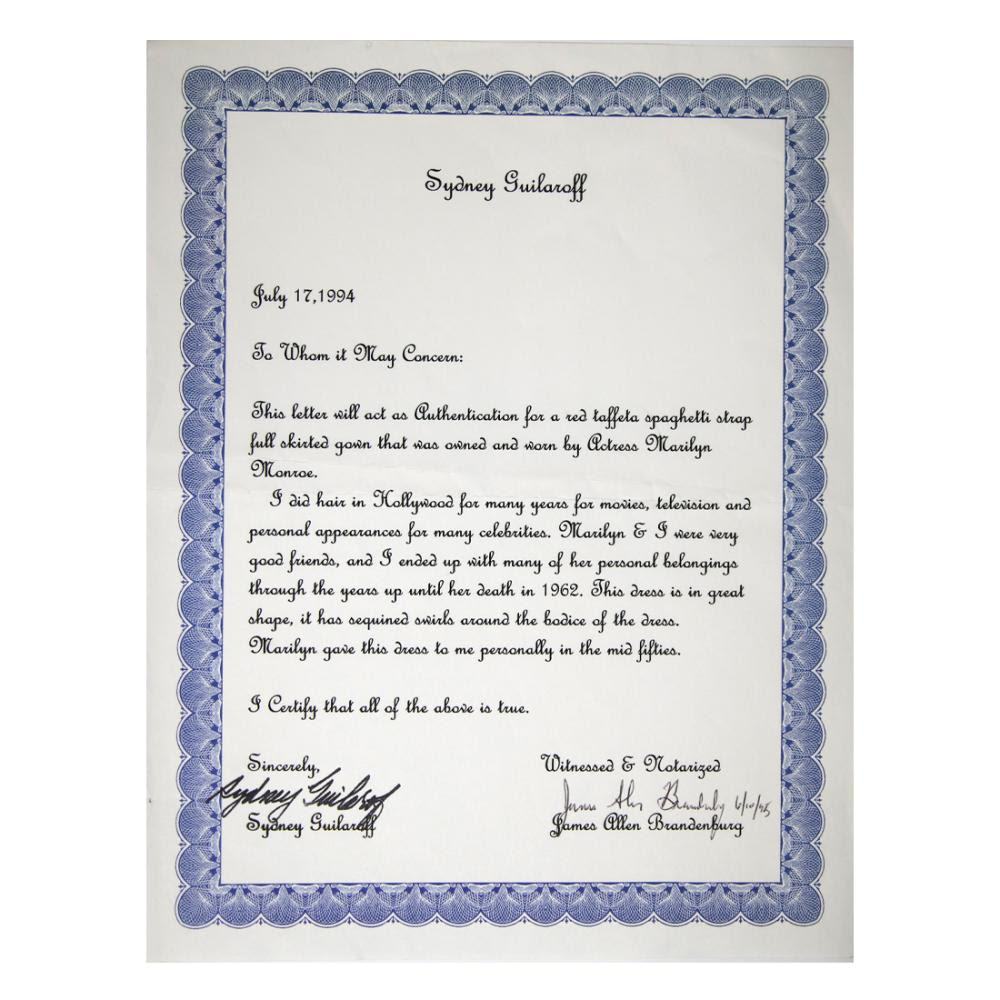 Sydney Guilaroff
July 17,1994
To Whom it May Concern:
This letter will act as Authentication for a red taffeta spaghetti strap
full skirted gown that was owned and worn by Actress Marilyn
Monroe.
I did hair in Hollywood for many years for movies, television and
personal appearances for many celebrities. Marilyn & I were very
good friends, and I ended up with many of her personal belongings
through the years up until her death in 1962. This dress is in great
shape, it has sequined swirls around the bodice of the dress.
Marilyn gave this dress to me personally in the mid fifties.
I Certify that all of the above is true.
Sincerely,
Sydney Guilaroff
Sydney Guilaroff
Witnessed & Notarized
James Allen Brandenburg